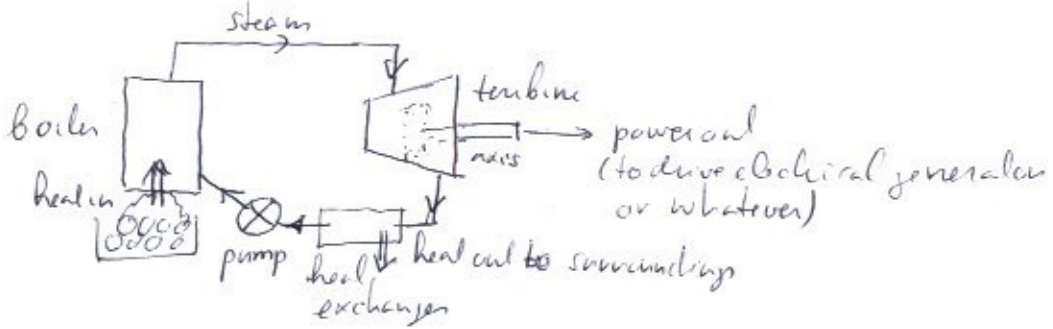 steam
boiler
turbine
axis
power out
(to drive electrical generator
or whatever)
heat in
pump
heat
exchanger
heat out to surroundings